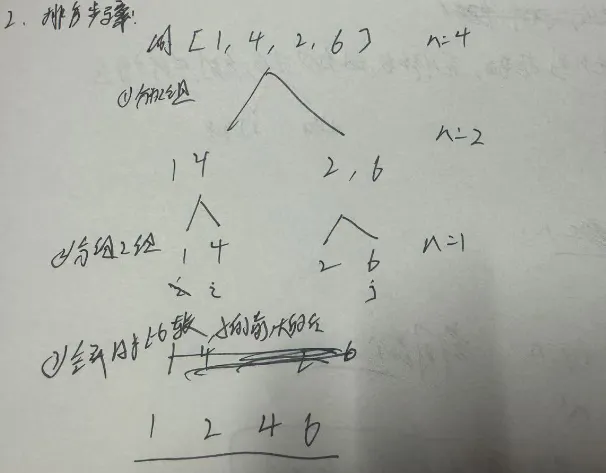 2、排序步骤:
例 [1, 4, 2, 6] n=4
①分2组
n=2
1 4 2, 6
②分组2组 1 4 2 6 n=1
i i j
③ 小的前大的后
1 4 2 6
1 2 4 6